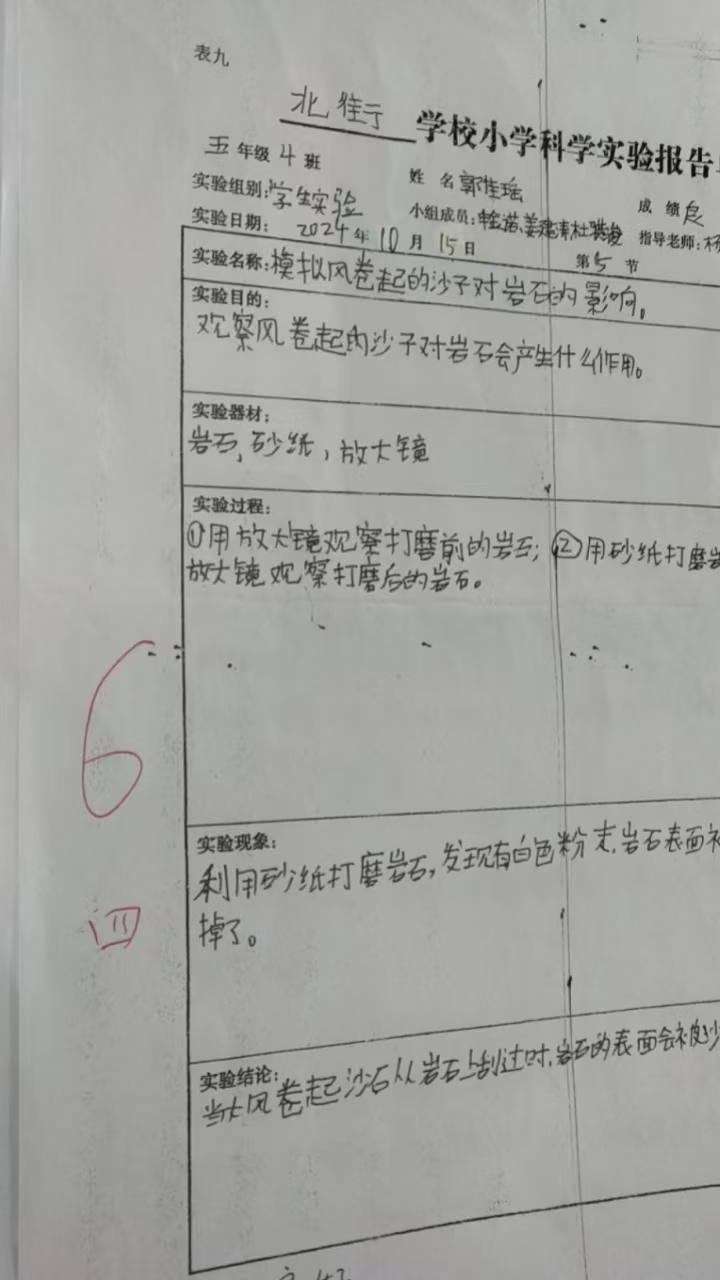 表九
北街 学校小学科学实验报告
五年级 4 班
姓 名 郭佳瑶
成 绩 良
实验组别:学生实验
小组成员:姜建清、杜
指导老师:
实验日期: 2024 年 10 月 15 日
第 5 节
实验名称:模拟风卷起的沙子对岩石的影响。
实验目的:
观察风卷起的沙子对岩石会产生什么作用。
实验器材:
岩石,砂纸,放大镜
实验过程:
①用放大镜观察打磨前的岩石;②用砂纸打磨岩
放大镜观察打磨后的岩石。
6
实验现象:
利用砂纸打磨岩石,发现有白色粉末,岩石表面被
掉了。
四
实验结论:
当大风卷起沙石从岩石上刮过时,岩石的表面会被沙